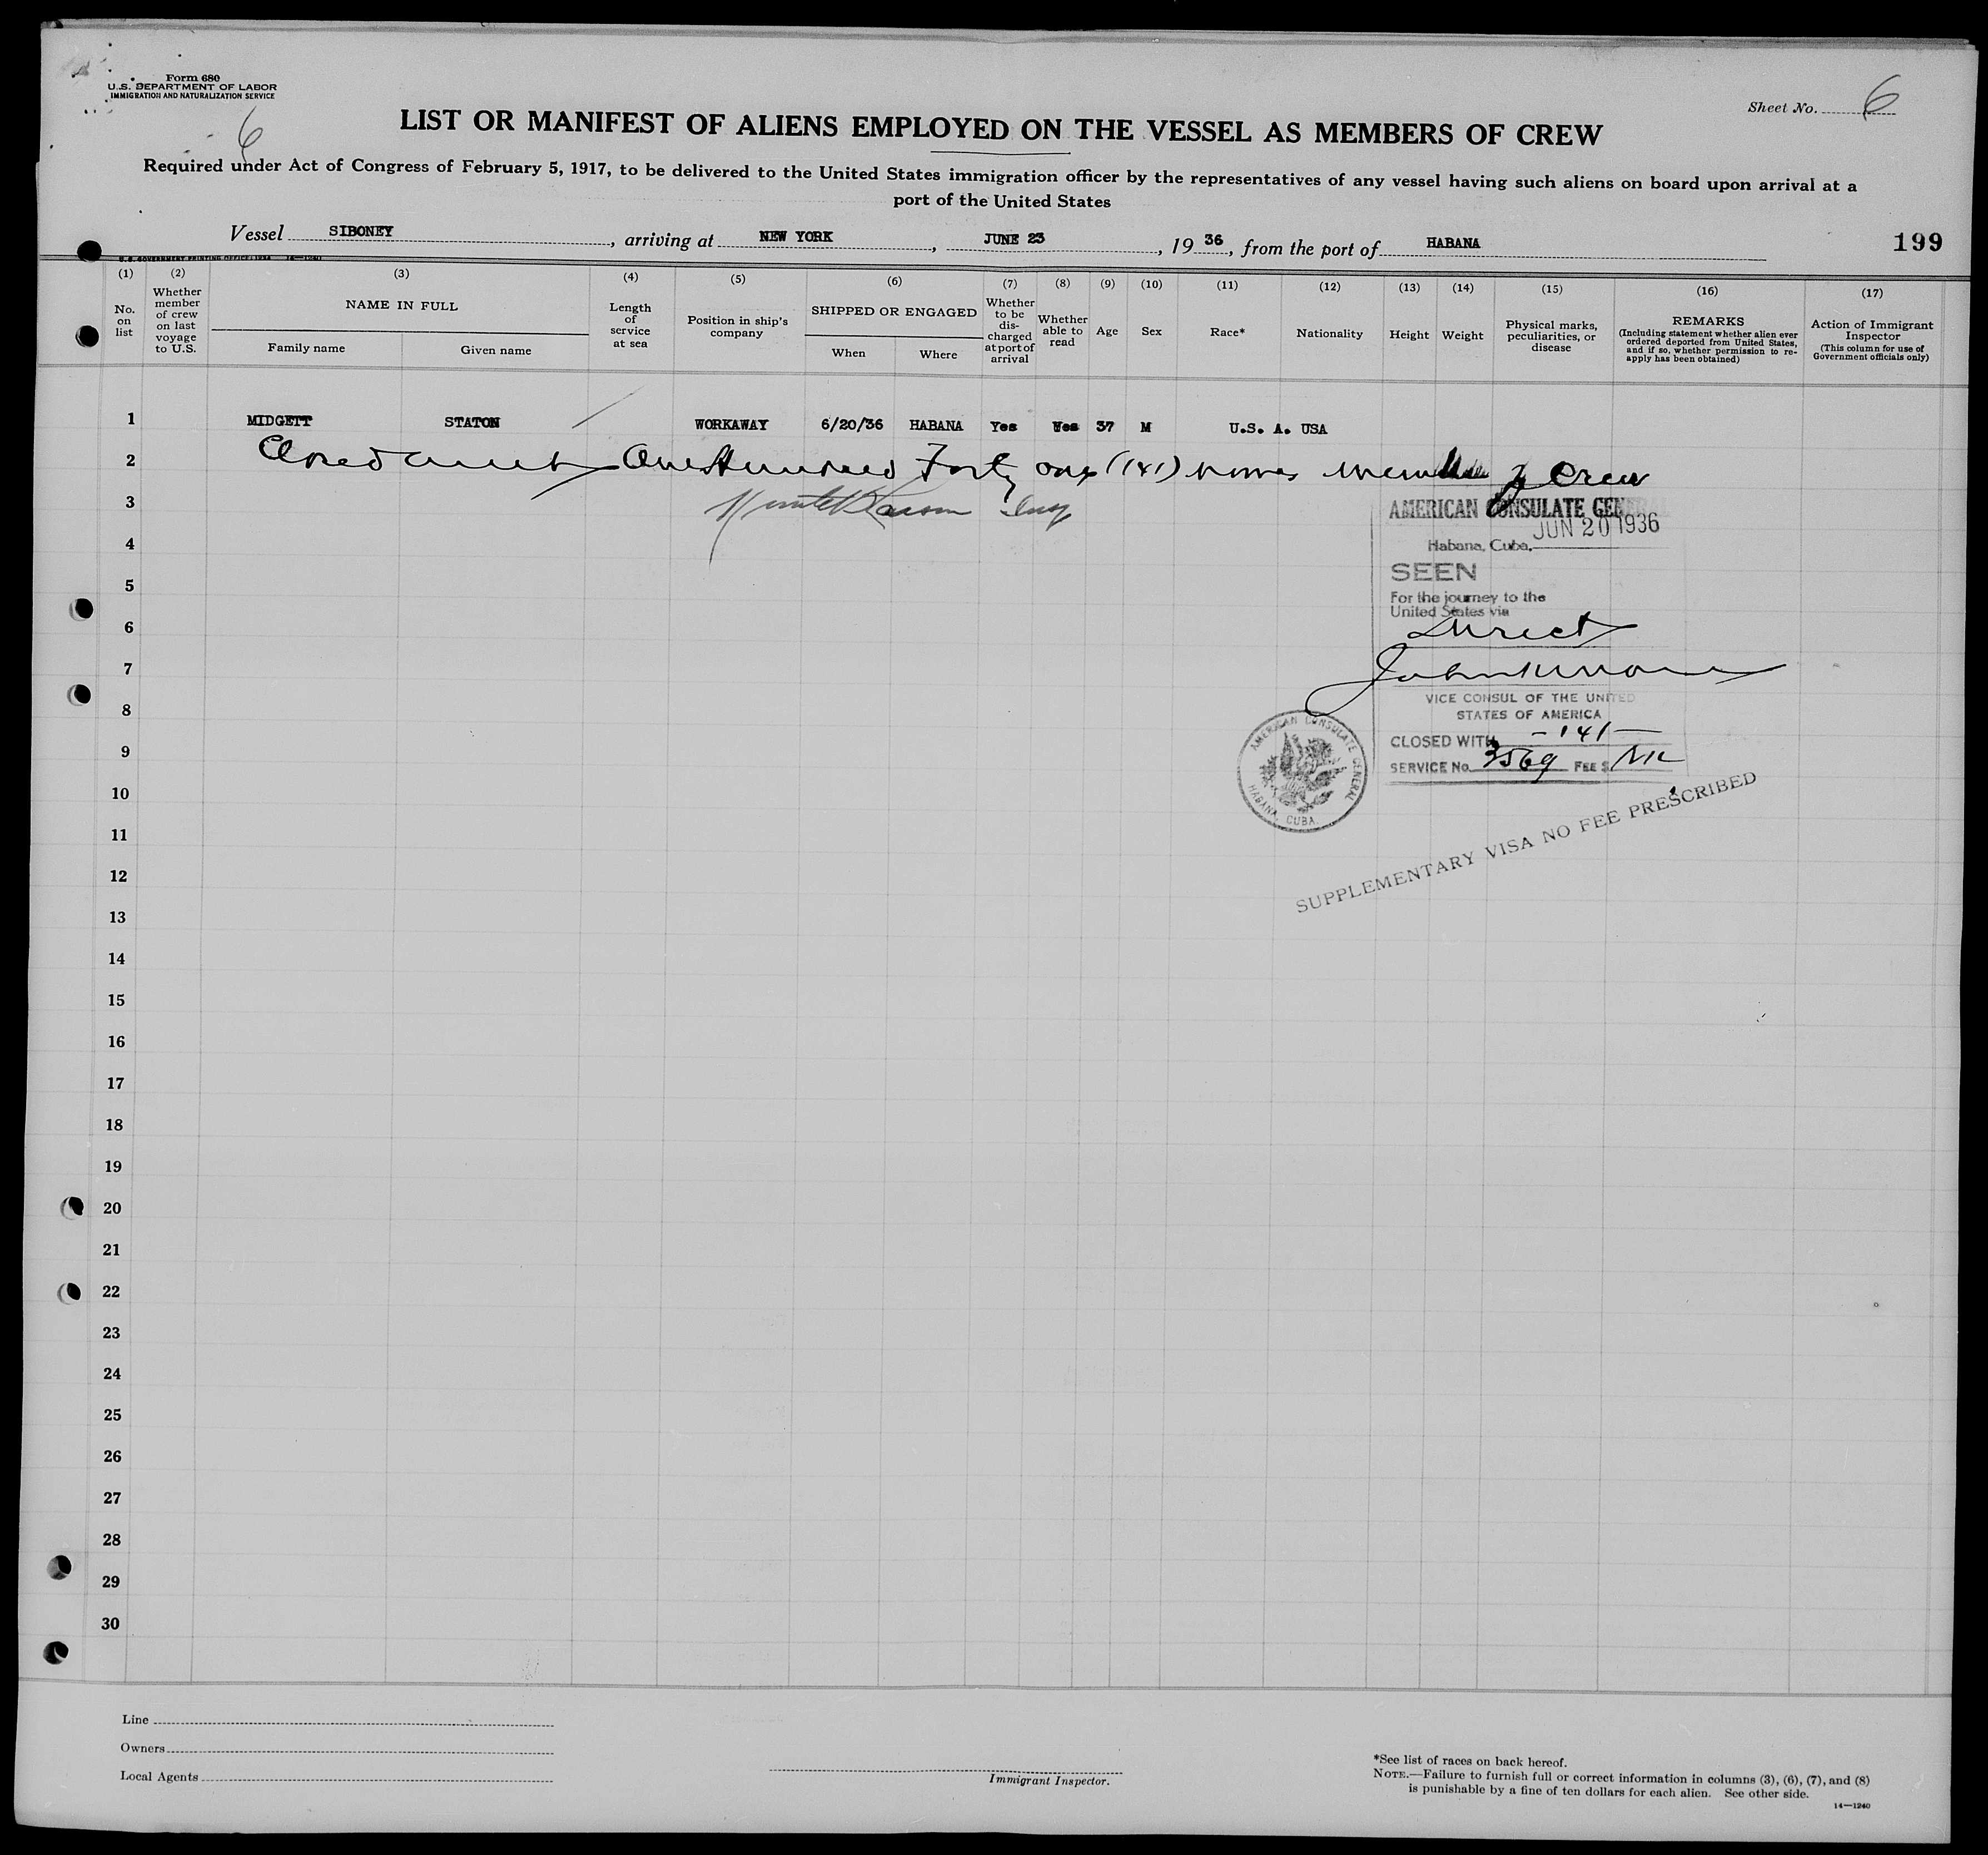 Form 680
U.S. DEPARTMENT OF LABOR
IMMIGRATION AND NATURALIZATION SERVICE
6
Sheet No. 6
LIST OR MANIFEST OF ALIENS EMPLOYED ON THE VESSEL AS MEMBERS OF CREW
Required under Act of Congress of February 5, 1917, to be delivered to the United States immigration officer by the representatives of any vessel having such aliens on board upon arrival at a
port of the United States
Vessel SIBONEY, arriving at NEW YORK, JUNE 23, 19 36, from the port of HABANA
199
(1) No. on list
(2) Whether member of crew on last voyage to U.S.
(3) NAME IN FULL Family name Given name
(4) Length of service at sea
(5) Position in ship's company
(6) SHIPPED OR ENGAGED When Where
(7) Whether to be discharged at port of arrival
(8) Whether able to read
(9) Age
(10) Sex
(11) Race*
(12) Nationality
(13) Height
(14) Weight
(15) Physical marks, peculiarities, or disease
(16) REMARKS (Including statement whether alien ever ordered deported from United States, and if so, whether permission to re-apply has been obtained)
(17) Action of Immigrant Inspector (This column for use of Government officials only)
1 MIDGETT STATON WORKAWAY 6/20/36 HABANA Yes Yes 37 M U.S. A. USA
2 Closed One Hundred Forty one (141) names members of Crew
3
AMERICAN CONSULATE GENERAL
JUN 20 1936
4
Habana, Cuba,
SEEN
5
For the journey to the
United States via
6 Direct
7
VICE CONSUL OF THE UNITED
8
STATES OF AMERICA
CLOSED WITH -141-
9
SERVICE No. 3569 FEE $
AMERICAN CONSULATE GENERAL
HABANA, CUBA.
10
SUPPLEMENTARY VISA NO FEE PRESCRIBED
11
12
13
14
15
16
17
18
19
20
21
22
23
24
25
26
27
28
29
30
Line
Owners
Local Agents
Immigrant Inspector.
*See list of races on back hereof.
NOTE.—Failure to furnish full or correct information in columns (3), (6), (7), and (8)
is punishable by a fine of ten dollars for each alien. See other side.
14—1240